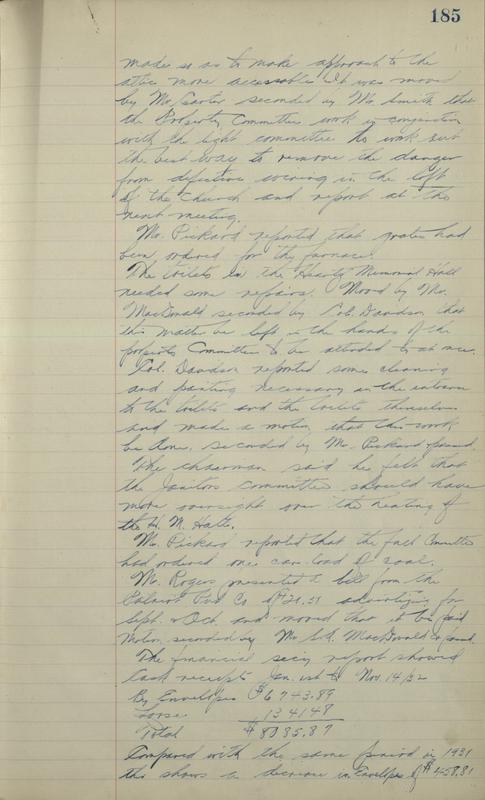 185
made so as to make approach to the
attic more accessable It was moved
by Mr. Carter seconded by Mr. Smith that
the Property Committee work in conjunction
with the light committee to work out
the best way to remove the danger
from defective wireing in the loft
of the church and report at the
next meeting.
Mr. Pickard reported that grates had
been ordered for the furnace.
The toilets in the Memorial Hall
needed some repairs. Moved by Mr.
MacDonald seconded by Col. Davidson that
this matter be left in the hands of the
property Committee to be attended to at once.
Col. Davidson reported some cleaning
and painting necessary in the entrance
to the toilets and the toilets themselves
and made a motion that this work
be done. seconded by Mr. Pickard passed.
The chairman said he felt that
the Janitors Committee should have
more oversight over the heating of
the H. M. Hall.
Mr. Pickard reported that the fuel Committee
had ordered one car-load of coal.
Mr. Rogers presented a bill from the
Pub Co of $21.51 advertizing for
Sept. & Oct. and moved that it be paid
Motion seconded by Mr. MacDonald & passed.
The financial secy report showed
Cash receipts Jan. 1st to Nov. 14/32
By Envelopes $6743.89
Loose 1341 48
Total $8085.37
Compared with the same period in 1931
this shows a decrease in Envelopes of $458.81